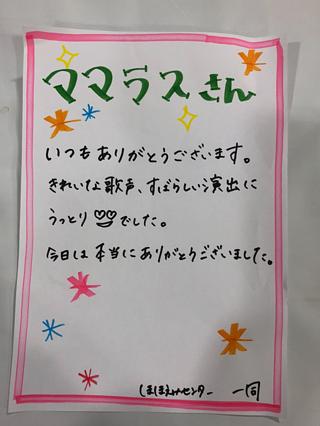 ママラスさん
いつもありがとうございます。
きれいな歌声、すばらしい演出に
うっとりでした。
今日は本当にありがとうございました。
しまほほえみセンター 一同